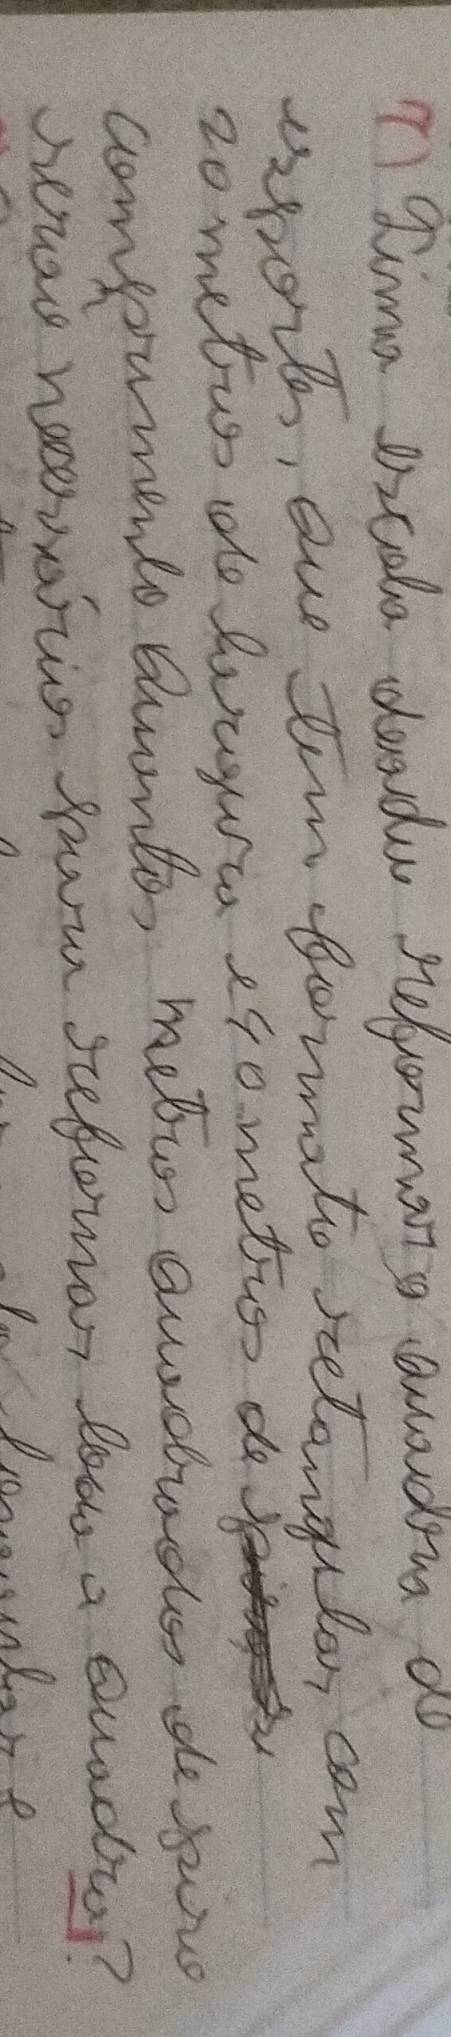 7) Uma escola decidiu reformar a quadra de
esportes, que tem formato retangular, com
20 metros de largura e 40 metros de
comprimento quantos metros quadrados de piso
serão necessários para reformar toda a quadra?